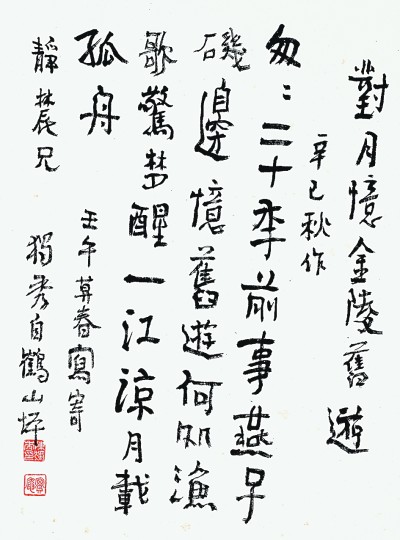 對月憶金陵舊遊
辛巳秋作
匆〻二十季前事燕子
磯邊憶舊遊何処漁
歌驚梦醒一江涼月載
孤舟
壬午莫春寫寄
靜農兄
獨秀自鶴山坪